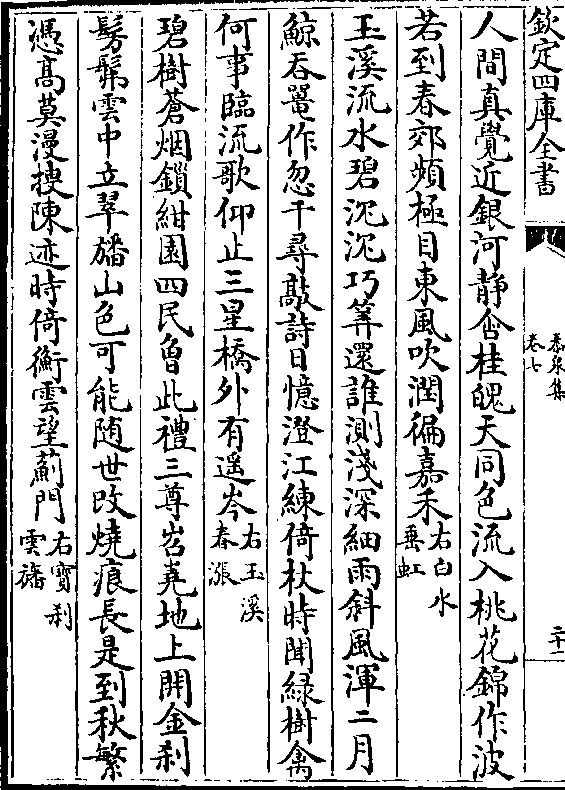 欽定四庫全書
泰泉集
卷七
人間真覺近銀河静含桂魄天同色流入桃花錦作波
若到春郊頻極目東風吹潤徧嘉禾
右白水
垂虹
玉溪流水碧沉沉巧筭還誰測淺深細雨斜風渾二月
鯨吞鼉作忽千尋敲詩日憶澄江練倚杖時聞緑樹禽
何事臨流歌仰止三星橋外有遥岑
右玉溪
春漲
碧樹蒼烟鎖紺園四民曾此禮三尊岧嶤地上開金刹
髣髴雲中立翠旛山色可能随世改燒痕長是到秋繁
憑髙莫漫捜陳迹時倚衡雲望薊門
右寳刹
雲旛